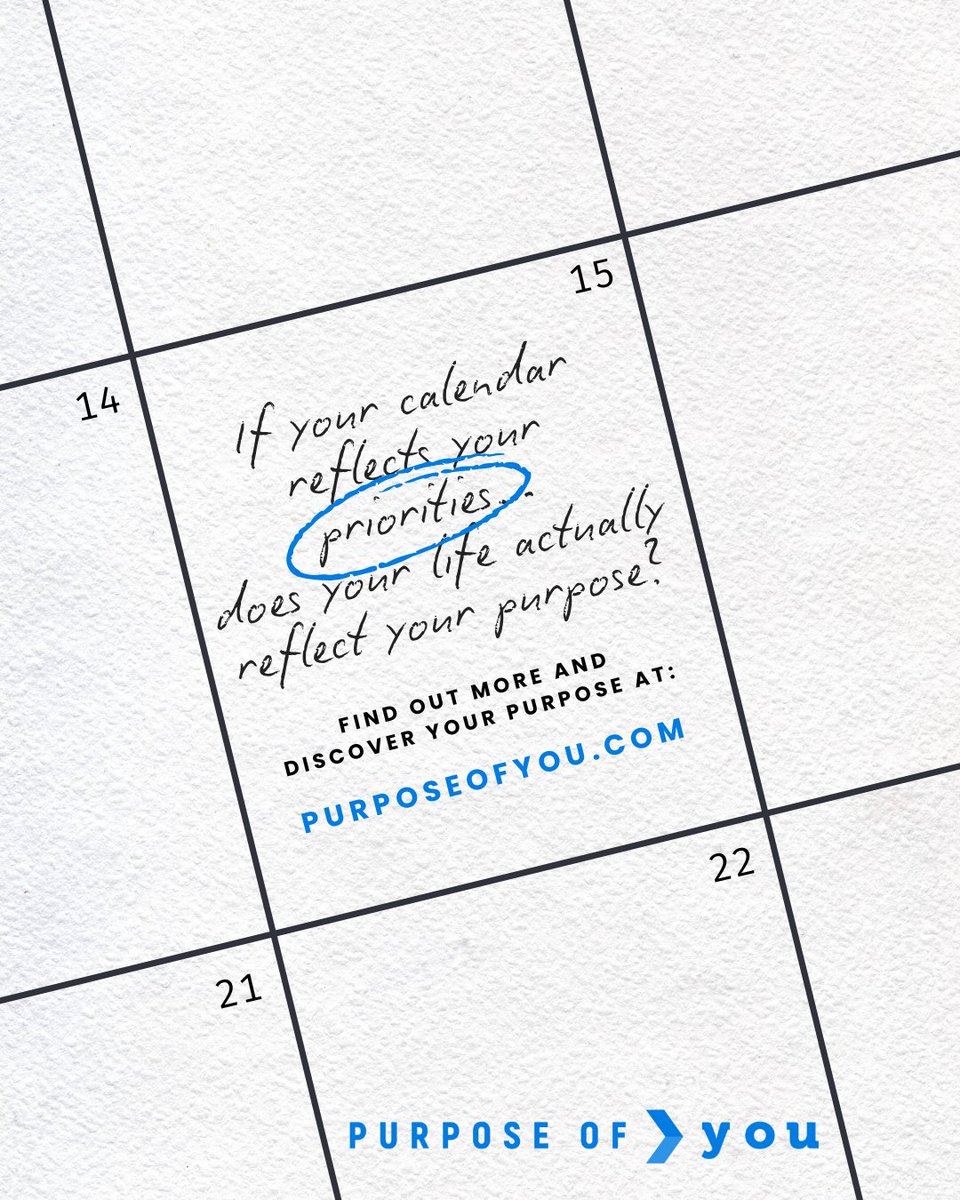 15
14
If your calendar
reflects your
priorities...
does your life actually
reflect your purpose?
FIND OUT MORE AND
DISCOVER YOUR PURPOSE AT:
PURPOSEOFYOU.COM
22
21
PURPOSE OF you